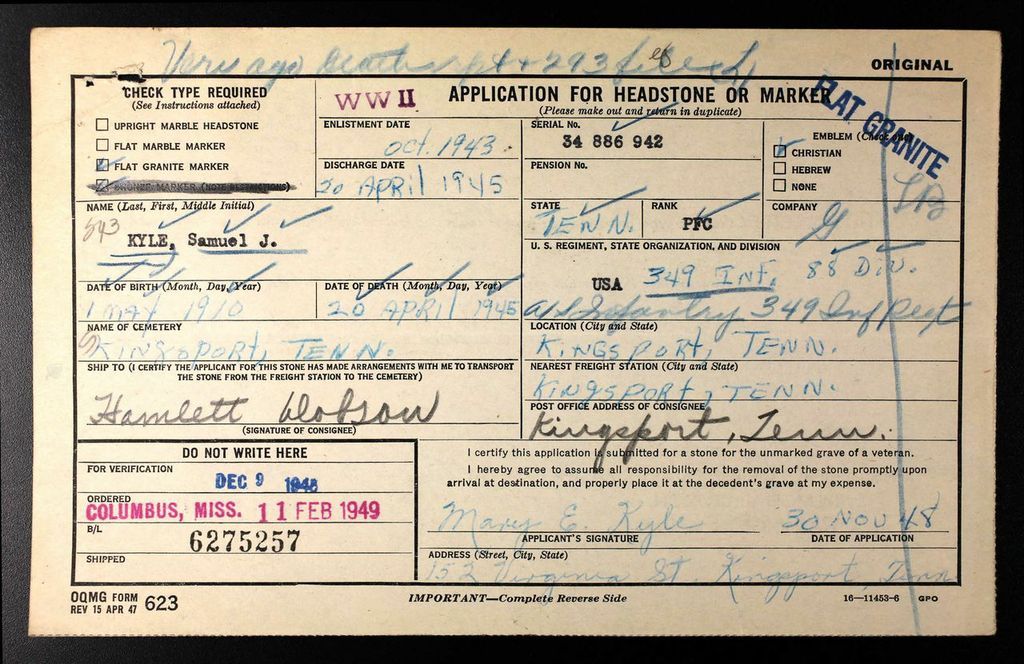 ORIGINAL
CHECK TYPE REQUIRED
(See Instructions attached)
UPRIGHT MARBLE HEADSTONE
FLAT MARBLE MARKER
FLAT GRANITE MARKER
BRONZE MARKER (NOTE RESTRICTIONS)
WW II
APPLICATION FOR HEADSTONE OR MARKER
(Please make out and return in duplicate)
FLAT GRANITE
ENLISTMENT DATE
Oct. 1943
DISCHARGE DATE
20 APRIL 1945
SERIAL No.
34 886 942
PENSION No.
EMBLEM (Check one)
CHRISTIAN
HEBREW
NONE
NAME (Last, First, Middle Initial)
KYLE, Samuel J.
STATE
TENN.
RANK
PFC
COMPANY
G
U. S. REGIMENT, STATE ORGANIZATION, AND DIVISION
USA 349 INF. 88 DIV.
Infantry 349 Inf Regt
DATE OF BIRTH (Month, Day, Year)
1 MAY 1910
DATE OF DEATH (Month, Day, Year)
20 APRIL 1945
NAME OF CEMETERY
KINGSPORT, TENN.
LOCATION (City and State)
KINGSPORT, TENN.
SHIP TO (I CERTIFY THE APPLICANT FOR THIS STONE HAS MADE ARRANGEMENTS WITH ME TO TRANSPORT
THE STONE FROM THE FREIGHT STATION TO THE CEMETERY)
Hamlett Dobson
(SIGNATURE OF CONSIGNEE)
NEAREST FREIGHT STATION (City and State)
KINGSPORT, TENN.
POST OFFICE ADDRESS OF CONSIGNEE
Kingsport, Tenn.
DO NOT WRITE HERE
FOR VERIFICATION
DEC 9 1948
ORDERED
COLUMBUS, MISS. 11 FEB 1949
B/L
6275257
SHIPPED
I certify this application is submitted for a stone for the unmarked grave of a veteran.
I hereby agree to assume all responsibility for the removal of the stone promptly upon
arrival at destination, and properly place it at the decedent's grave at my expense.
Mary E. Kyle
30 NOV 48
APPLICANT'S SIGNATURE
DATE OF APPLICATION
ADDRESS (Street, City, State)
152 Virginia St. Kingsport, Tenn
OQMG FORM
REV 15 APR 47 623
IMPORTANT—Complete Reverse Side
16—11453-6 GPO